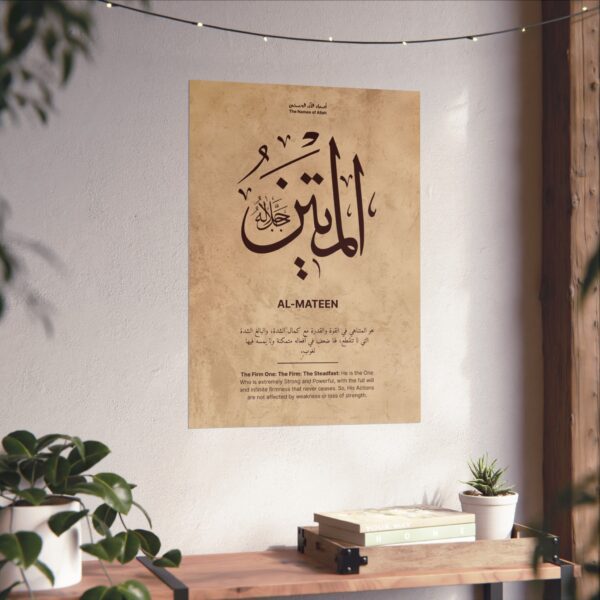 أسماء الله الحسنى
The Names of Allah
المتين
جل جلاله
AL-MATEEN
هو المتناهي في القوة والقدرة مع كمال الشدة، والبالغ الشدة
التي لا تنقطع، فلا ضعف في أفعاله متمكنة ولا يمسه فيها
لغوب،
The Firm One: The Firm: The Steadfast: He is the One
Who is extremely Strong and Powerful, with the full will
and infinite firmness that never ceases. So, His Actions
are not affected by weakness or loss of strength.
HOME